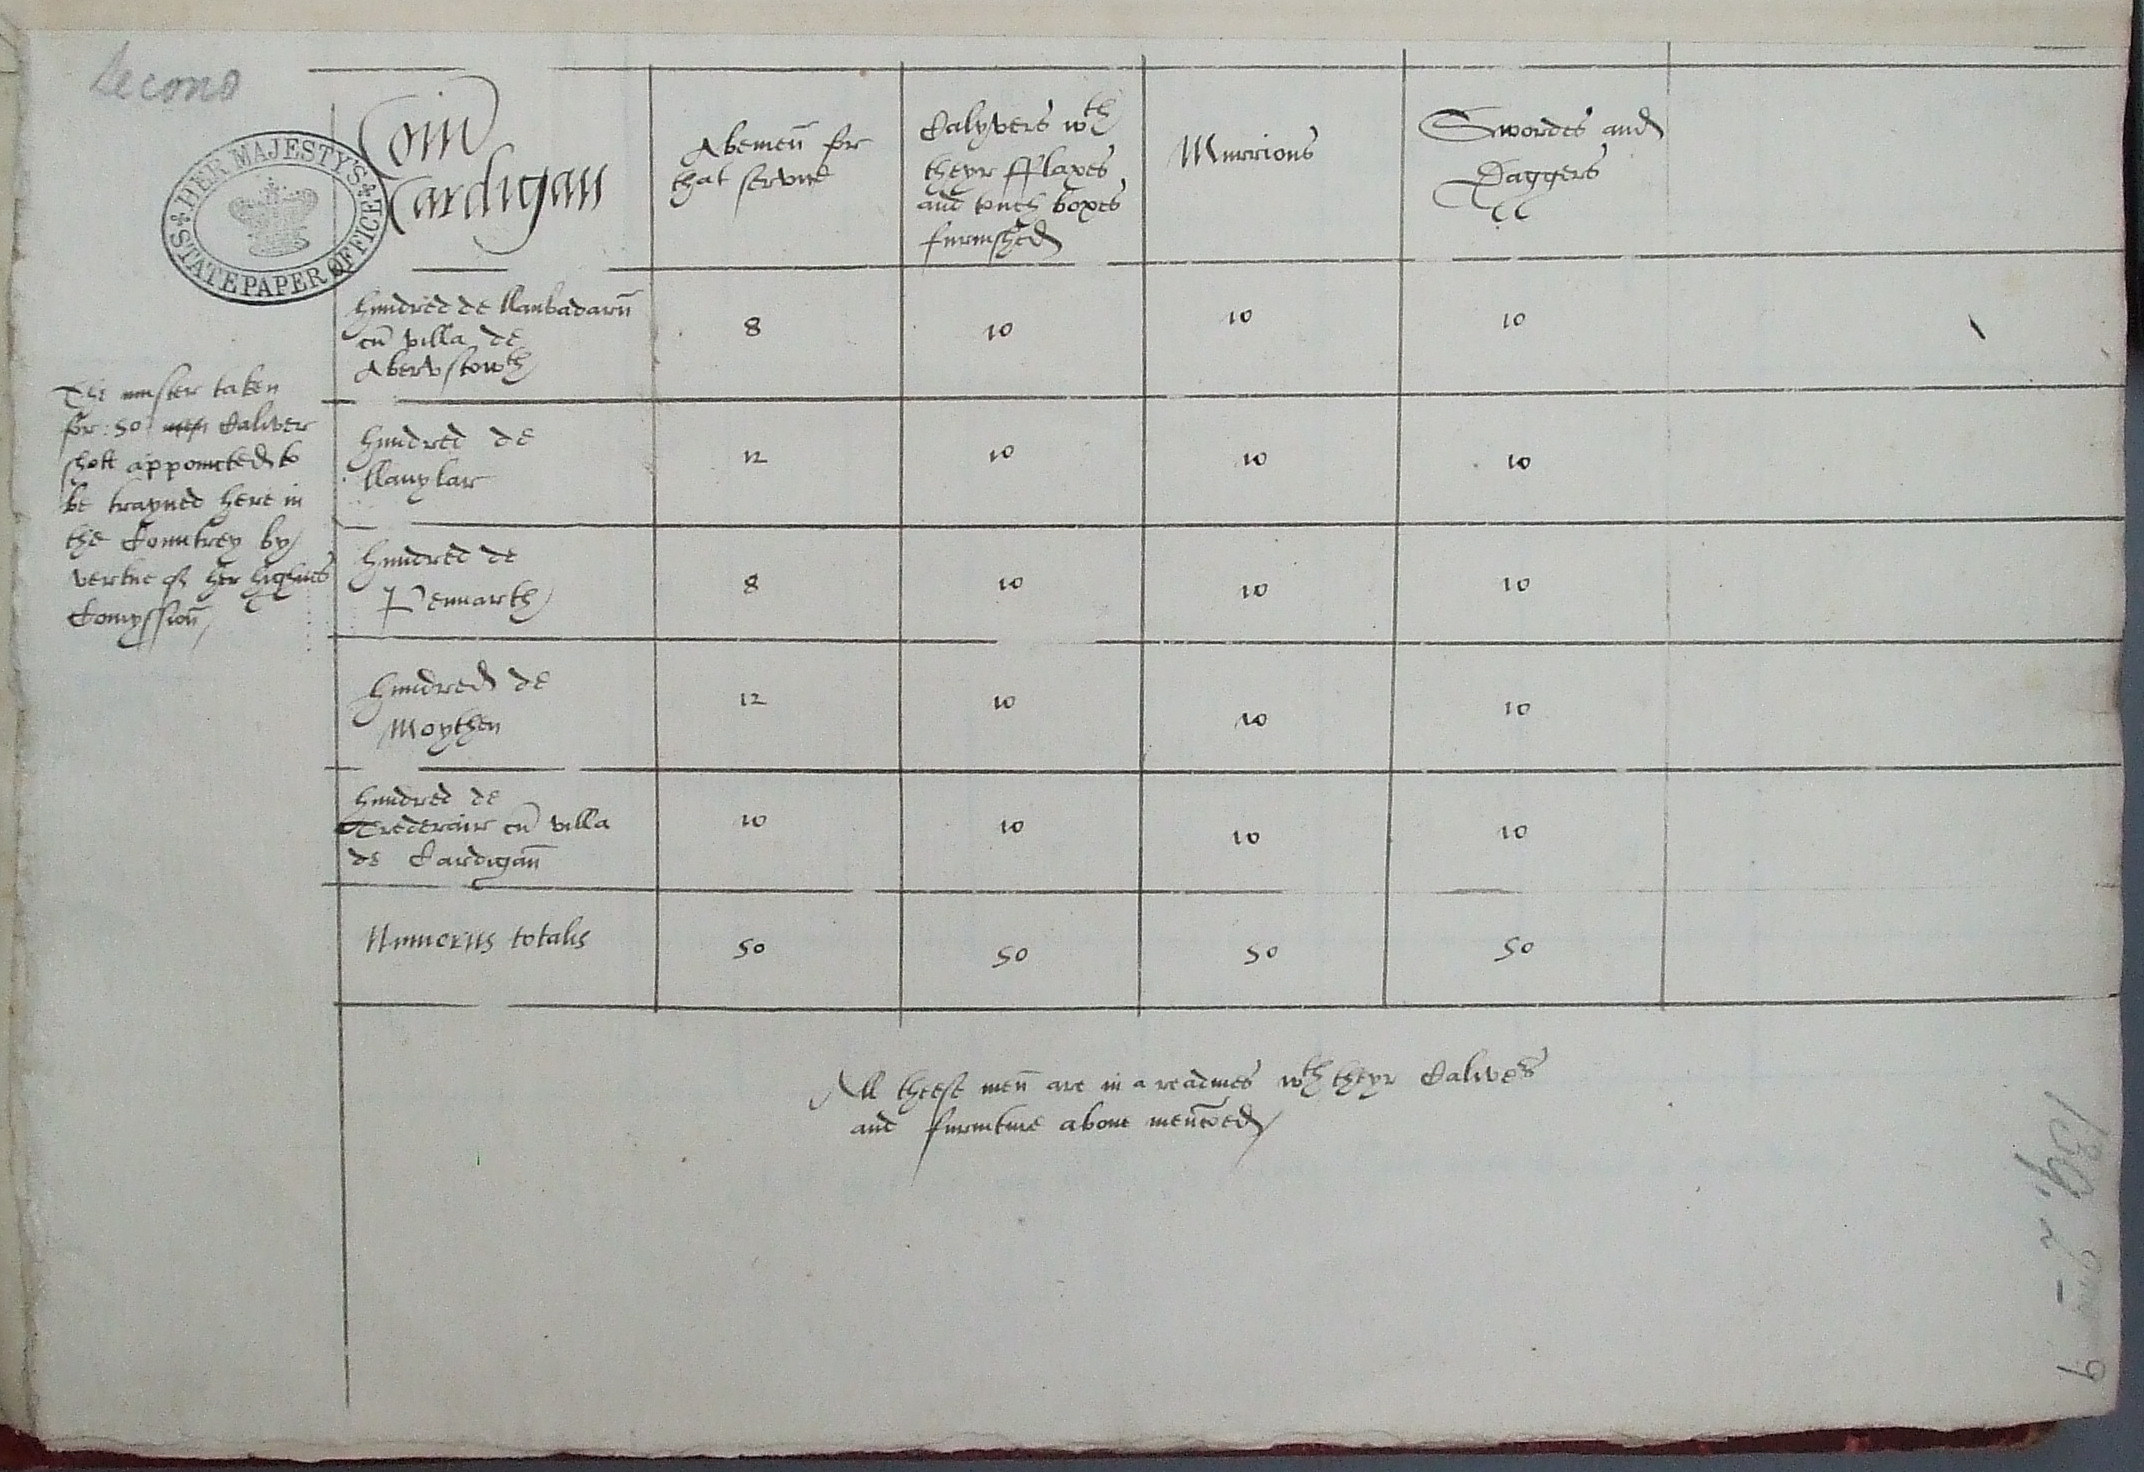 Second
HER MAJESTY'S
STATE PAPER OFFICE
Com
Cardigan
Abemen̄ for
that servic̄e
Calyvers wth
theyr fflaxes
and touch boxes
furnished
Murrions
Swordes and
Daggers
hundred de llanbadarn̄
cū villa de
Abervstowth
8
10
10
10
The muster taken
for: 50 men Caliver
shott appoincted to
be trayned here in
the Countrey by
vertue of her highnes
Comyssion̄
hundred de
llanylar
12
10
10
10
hundred de
Pennarth
8
10
10
10
hundred de
Moythen
12
10
10
10
hundred de
Trederoir cū villa
de Cardigan̄
10
10
10
10
Numerus totalis
50
50
50
50
All theese men̄ are in a readines wth theyr Calivers
and furniture above men̄coed
139.
9